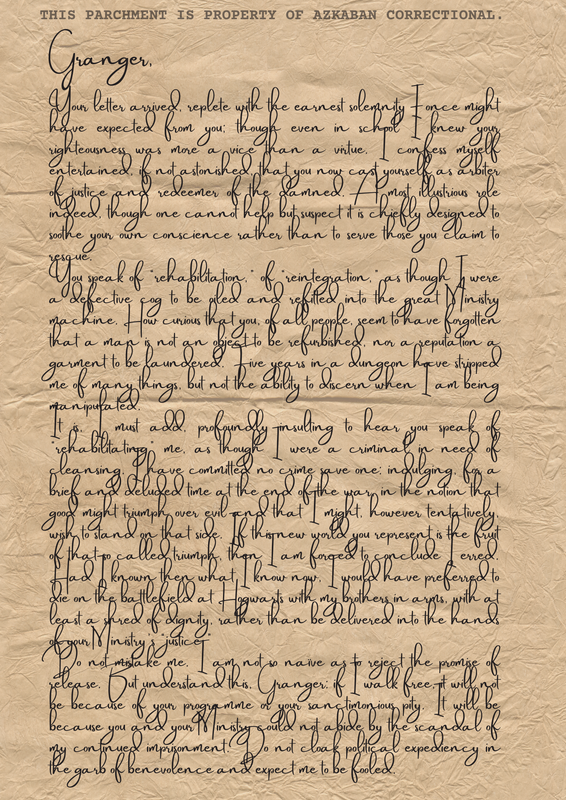 THIS PARCHMENT IS PROPERTY OF AZKABAN CORRECTIONAL.
Granger,
Your letter arrived, replete with the earnest solemnity I once might
have expected from you; though even in school I knew your
righteousness was more a vice than a virtue. I confess myself
entertained, if not astonished, that you now cast yourself as arbiter
of justice and redeemer of the damned. A most illustrious role
indeed, though one cannot help but suspect it is chiefly designed to
soothe your own conscience rather than to serve those you claim to
rescue.
You speak of "rehabilitation," of "reintegration," as though I were
a defective cog to be oiled and refitted into the great Ministry
machine. How curious that you, of all people, seem to have forgotten
that a man is not an object to be refurbished, nor a reputation a
garment to be laundered. Five years in a dungeon have stripped
me of many things, but not the ability to discern when I am being
manipulated.
It is, I must add, profoundly insulting to hear you speak of
"rehabilitating" me, as though I were a criminal in need of
cleansing. I have committed no crime save one: indulging, for a
brief and deluded time at the end of the war, in the notion that
good might triumph over evil and that I might, however tentatively,
wish to stand on that side. If this new world you represent is the fruit
of that so called triumph, then I am forced to conclude I erred.
Had I known then what I know now, I would have preferred to
die on the battlefield at Hogwarts with my brothers in arms, with at
least a shred of dignity, rather than be delivered into the hands
of your Ministry's "justice".
Do not mistake me. I am not so naive as to reject the promise of
release. But understand this, Granger: if I walk free, it will not
be because of your programme or your sanctimonious pity. It will be
because you and your Ministry could not abide by the scandal of
my continued imprisonment. Do not cloak political expediency in
the garb of benevolence and expect me to be fooled.